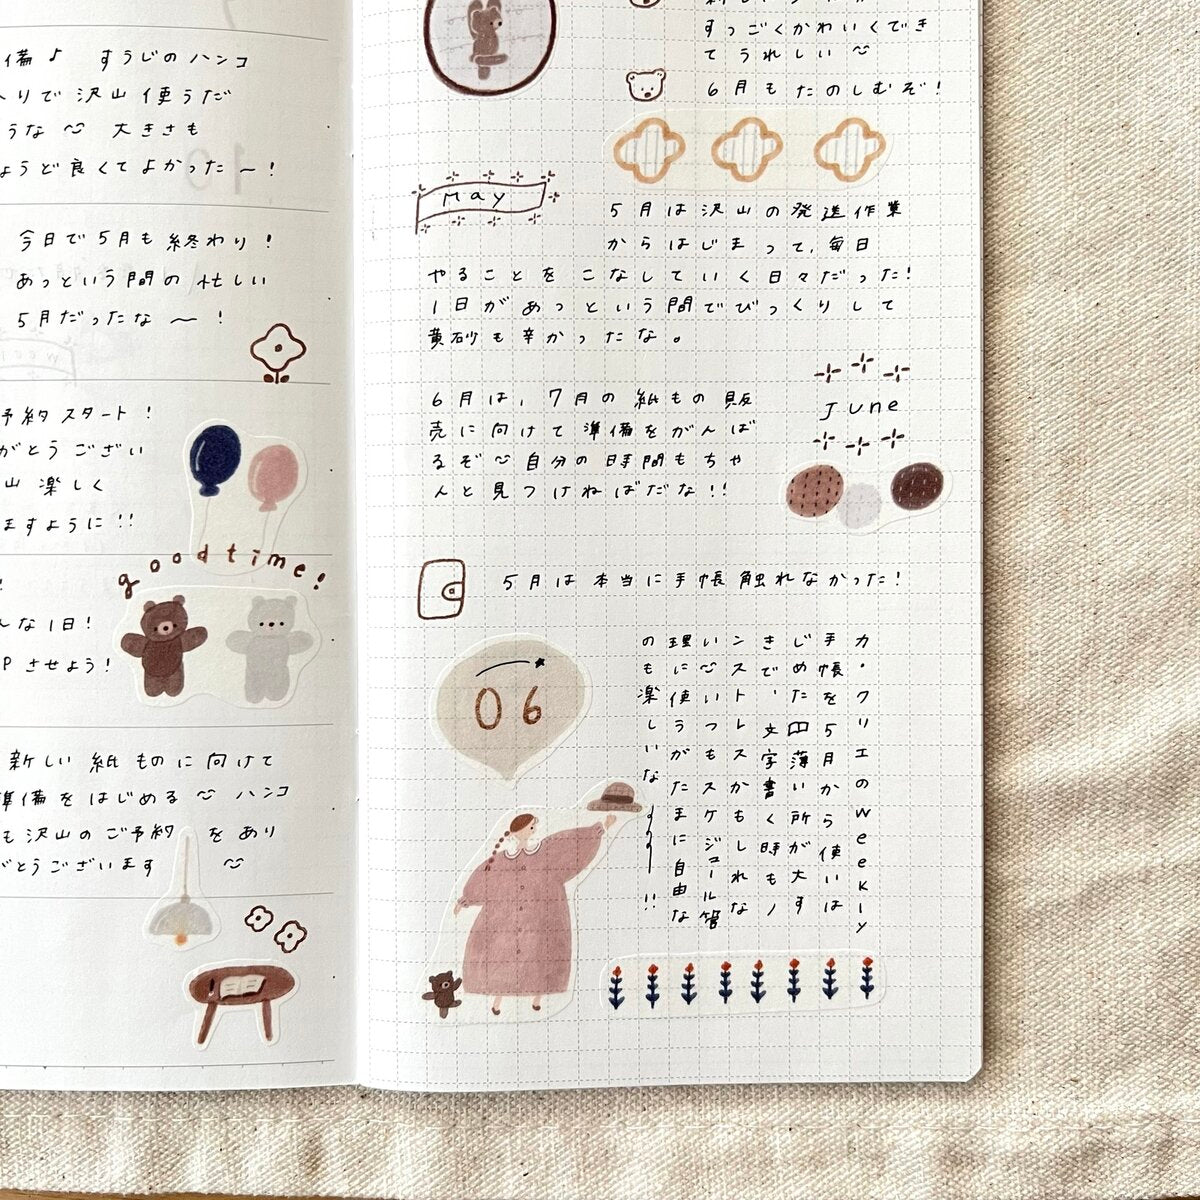 備♪ すうじのハンコ
りで沢山使うだ
うな 大きさも
ょうど良くてよかった〜!
今日で5月も終わり!
あっという間の忙しい
5月だったな〜!
予約スタート!
がとうござい
山楽しく
ますように!!
goodtime!
!
んな1日!
Pさせよう!
新しい紙ものに向けて
準備をはじめる ハンコ
も沢山のご予約 をあり
がとうございます
すっごくかわいくでき
てうれしい
6月もたのしむぞ!
May
5月は沢山の発送作業
からはじまって、毎日
やることをこなしていく日々だった!
1日があっという間でびっくりして
黄砂も辛かったな。
June
6月は、7月の紙もの販
売に向けて準備をがんば
るぞ 自分の時間もちゃ
んと見つけねばだな!!
5月は本当に手帳触れなかった!
06
カ・クリエのweekly
手帳を5月から使いは
じめた 薄い所が大す
きで、文字書く時もノ
ンストレスかもしれな
い いつもスケジュール管
理に使うがたまに自由な
のも楽しいな〜〜!!